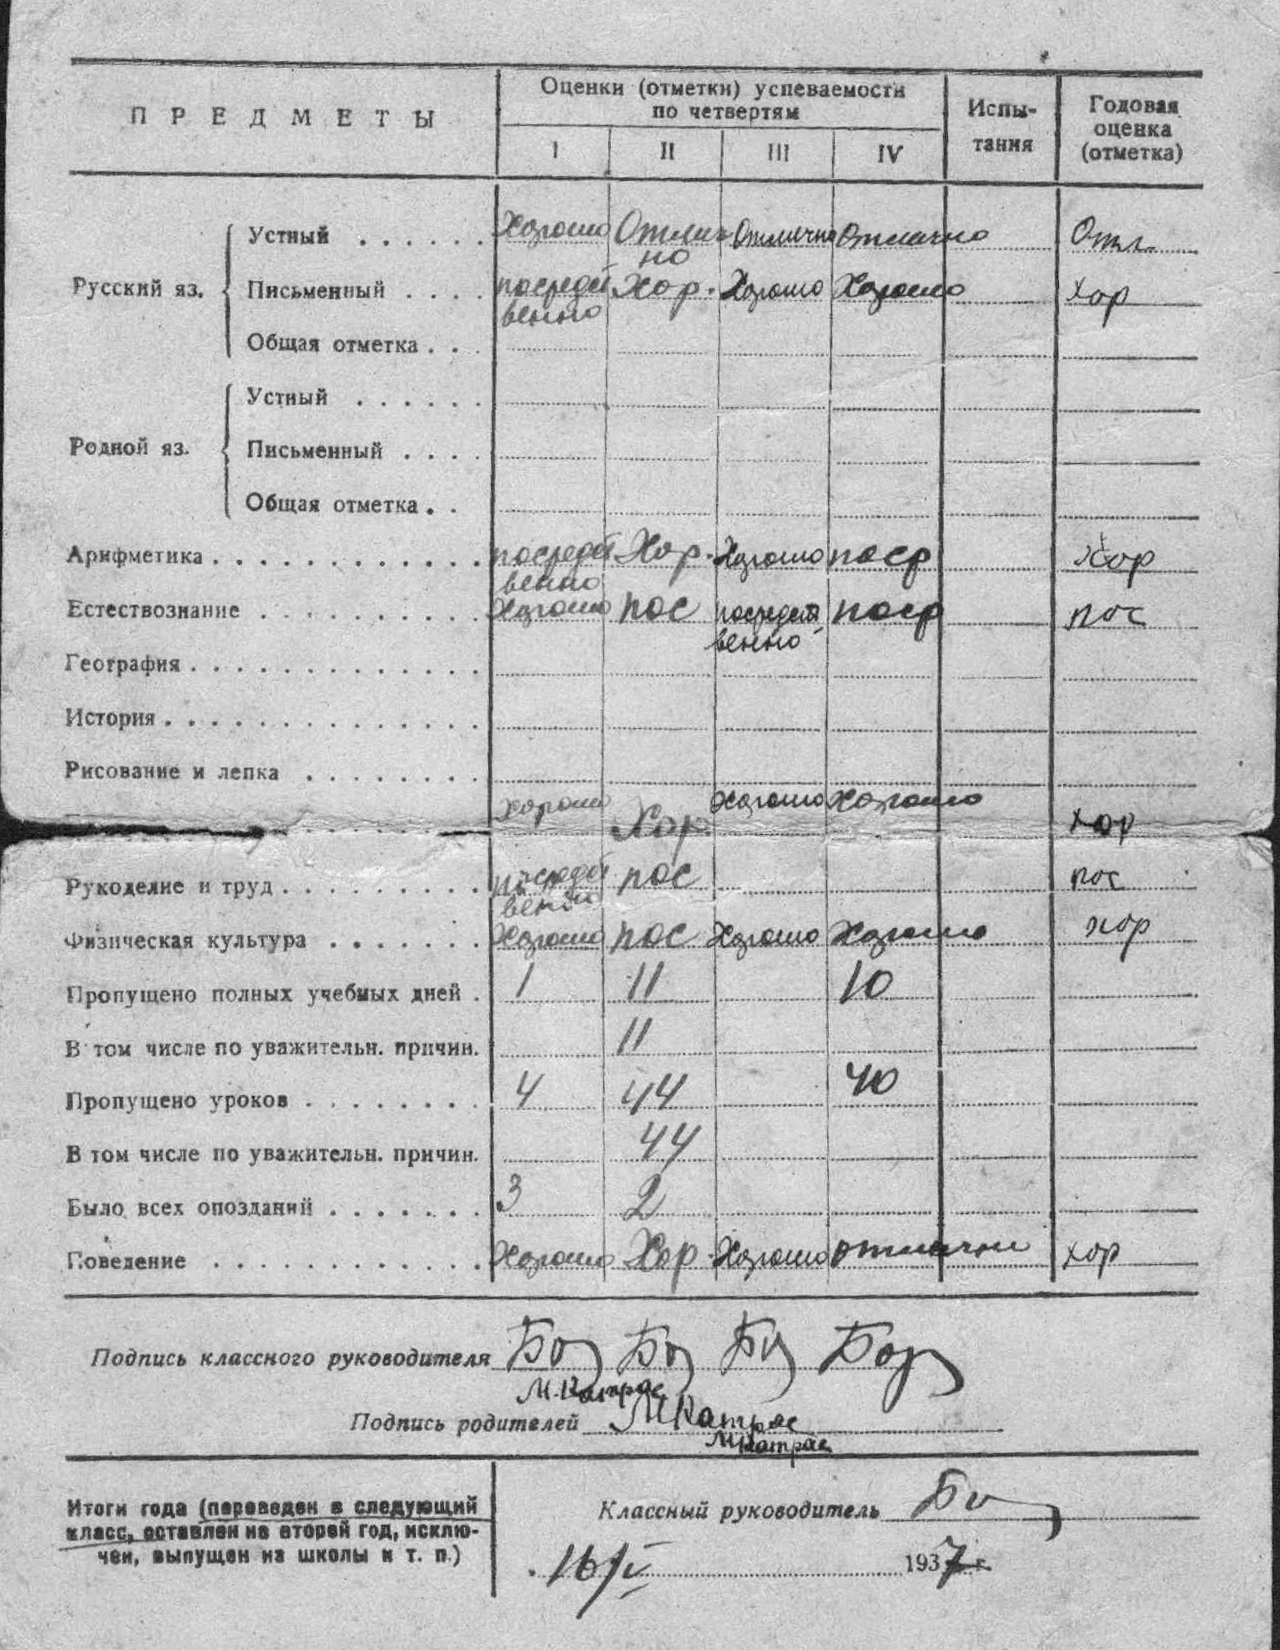 ПРЕДМЕТЫ Оценки (отметки) успеваемости по четвертям Испы-тания Годовая оценка (отметка)
I II III IV
Русский яз. Устный Хорошо Отлично Отлично Отлично Отл.
Письменный посредственно Хор. Хорошо Хорошо Хор
Общая отметка
Родной яз. Устный
Письменный
Общая отметка
Арифметика посредственно Хор. Хорошо поср Хор
Естествознание Хорошо пос посредственно поср пос
География
История
Рисование и лепка
Хорошо Хор. Хорошо Хорошо Хор
Рукоделие и труд посредственно пос пос
Физическая культура Хорошо пос Хорошо Хорошо Хор
Пропущено полных учебных дней 1 11 10
В том числе по уважительн. причин. 11
Пропущено уроков 4 44 40
В том числе по уважительн. причин. 44
Было всех опозданий 3 2
Поведение Хорошо Хор. Хорошо отлично Хор
Подпись классного руководителя
М.Катрас
Подпись родителей МКатрас
МКатрас
Итоги года (переведен в следующий
класс, оставлен на второй год, исклю-
чен, выпущен из школы и т. п.)
Классный руководитель
16/V 1937 г.